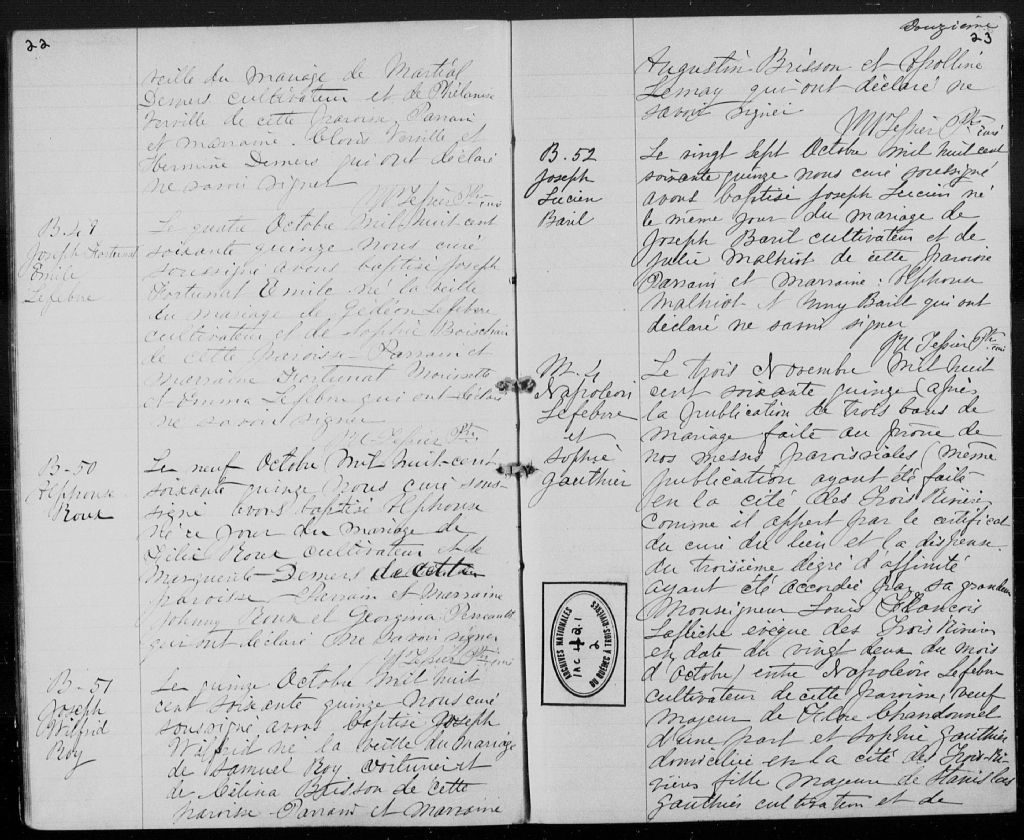 22
veille du mariage de Martial
Demers cultivateur et de Philomène
Verville de cette paroisse, Parrain
et marraine: Clovis Verville et
Hermine Demers qui ont déclaré
ne savoir signer
Tessier Ptre curé
B. 49
Joseph Fortunat
Emile
Lefebvre
Le quatre Octobre mil huit cent
soixante quinze nous curé
soussigné avons baptisé Joseph
Fortunat Emile né la veille
du mariage de Gédéon Lefebvre
cultivateur et de Sophie
de cette paroisse - Parrain et
marraine Fortunat Morissette
et Emma Lefebvre qui ont déclaré
ne savoir signer
Tessier Ptre
B-50
Alphonse
Roux
Le neuf Octobre mil huit-cent
soixante quinze nous curé sous-
signé avons baptisé Alphonse
né ce jour du mariage de
Roux cultivateur et de
Marguerite Demers de cette
paroisse - Parrain et marraine
Johnny Roux et Georgina Perreault
qui ont déclaré ne savoir signer
Tessier Ptre curé
B-51
Joseph
Wilfrid
Roy
Le quinze Octobre mil huit
cent soixante quinze nous curé
soussigné avons baptisé Joseph
Wilfrid né la veille du mariage
de Samuel Roy voiturier et
de Célina Brisson de cette
paroisse - Parrain et marraine
Douzième
23
Augustin Brisson et Apolline
Lemay qui ont déclaré ne
savoir signer
Tessier Ptre curé
B. 52
Joseph
Lucien
Baril
Le vingt sept Octobre mil huit cent
soixante quinze nous curé soussigné
avons baptisé Joseph Lucien né
le même jour du mariage de
Joseph Baril cultivateur et de
Julie Malhiot de cette paroisse
Parrain et marraine: Alphonse
Malhiot et Anny Baril qui ont
déclaré ne savoir signer
Tessier Ptre curé
M. 4
Napoléon
Lefebvre
et
Sophie
Gauthier
Le trois Novembre mil huit
cent soixante quinze (après
la publication de trois bans de
mariage faite au prône de
nos messes paroissiales (même
publication ayant été faite
en la cité des Trois Rivières
comme il appert par le certificat
du curé du lieu et la dispense
du troisième dégré d'affinité
ayant été accordée par sa grandeur
Monseigneur Louis François
Laflèche évêque des Trois Rivières
en date du vingt deux du mois
d'Octobre) entre Napoléon Lefebvre
cultivateur de cette paroisse, veuf
majeur de Flore Chandonnet
d'une part et Sophie Gauthier
domiciliée en la cité des Trois-Ri-
vières fille majeure de Stanislas
Gauthier cultivateur et de
ARCHIVES NATIONALES
DU QUÉBEC À TROIS-RIVIÈRES
2